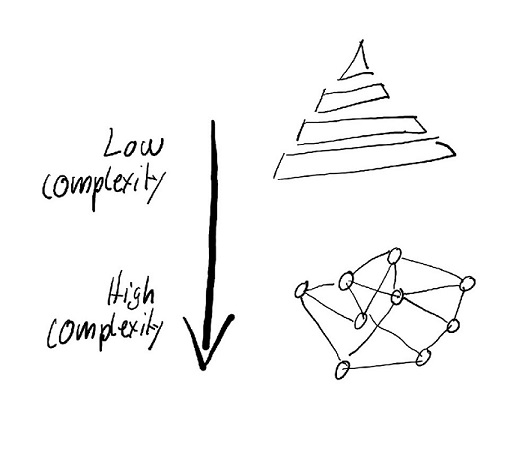 Low
complexity
High
complexity